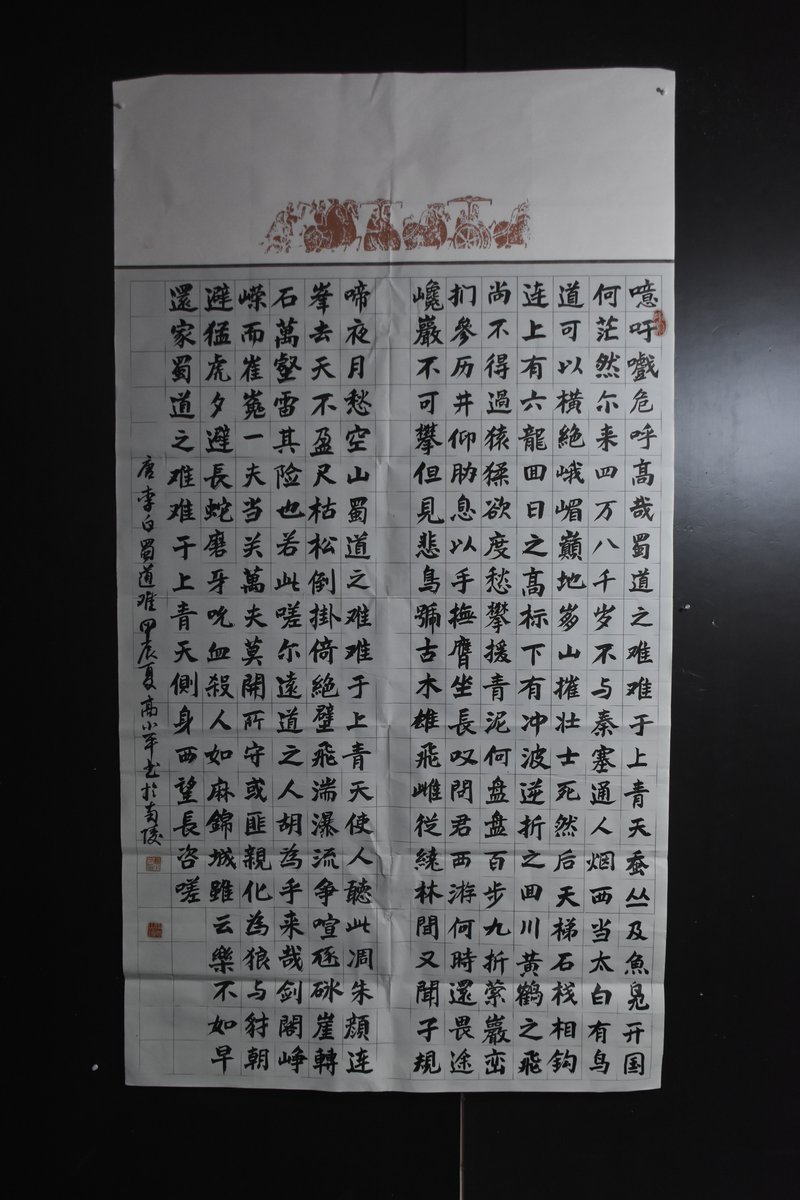 噫吁嚱危呼高哉蜀道之难难于上青天蚕丛及魚凫开国
何茫然尔来四万八千岁不与秦塞通人烟西当太白有鸟
道可以横絶峨嵋巅地崩山摧壮士死然后天梯石栈相钩
连上有六龍回日之高标下有冲波逆折之回川黄鹤之飛
尚不得過猿猱欲度愁攀援青泥何盘盘百步九折萦巖峦
扪參历井仰胁息以手撫膺坐長叹問君西游何時還畏途
巉巖不可攀但見悲鳥號古木雄飛雌從繞林間又聞子規
啼夜月愁空山蜀道之难难于上青天使人聽此凋朱顔连
峯去天不盈尺枯松倒掛倚絶壁飛湍瀑流争喧豗砯崖轉
石萬壑雷其险也若此嗟尔遠道之人胡為乎来哉剑閣峥
嵘而崔嵬一夫当关萬夫莫開所守或匪親化為狼与豺朝
避猛虎夕避長蛇磨牙吮血殺人如麻錦城雖云樂不如早
還家蜀道之难难于上青天側身西望長咨嗟
唐李白蜀道难甲辰夏高小军书於南陵